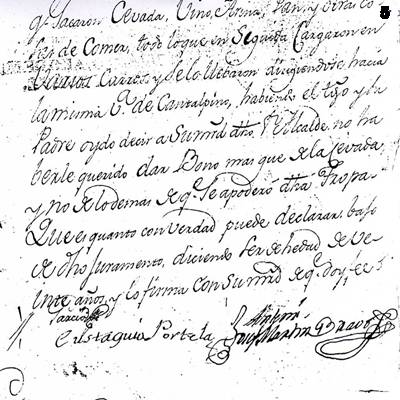 q.e sacaron Cevada, Vino, Arina, Pan, y otras co
sas de Comer, todo lo que en Seguida Cargaron en
varios Carros y se lo llebaron dirigiendose hacia
la misma V.a de Cantalpino, habiendo el tgo y su
Padre oydo decir a Sumrd dho S.r Alcalde no ha
berle querido dar Bono mas que de la Cevada
y no de lo demas de q.e se apodero dha Tropa
Que es quanto con verdad puede declarar bajo
de dho Juramento, diciendo ser de hedad de ve
inte años y lo firma con Sumrd de q.e Doy fee
Garcia
Eustaquio Portela
Antemi
Josef Martin Bravo